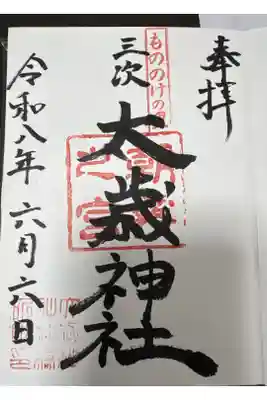 奉拝
もののけの
三次
太歳神社
令和八年六月六日